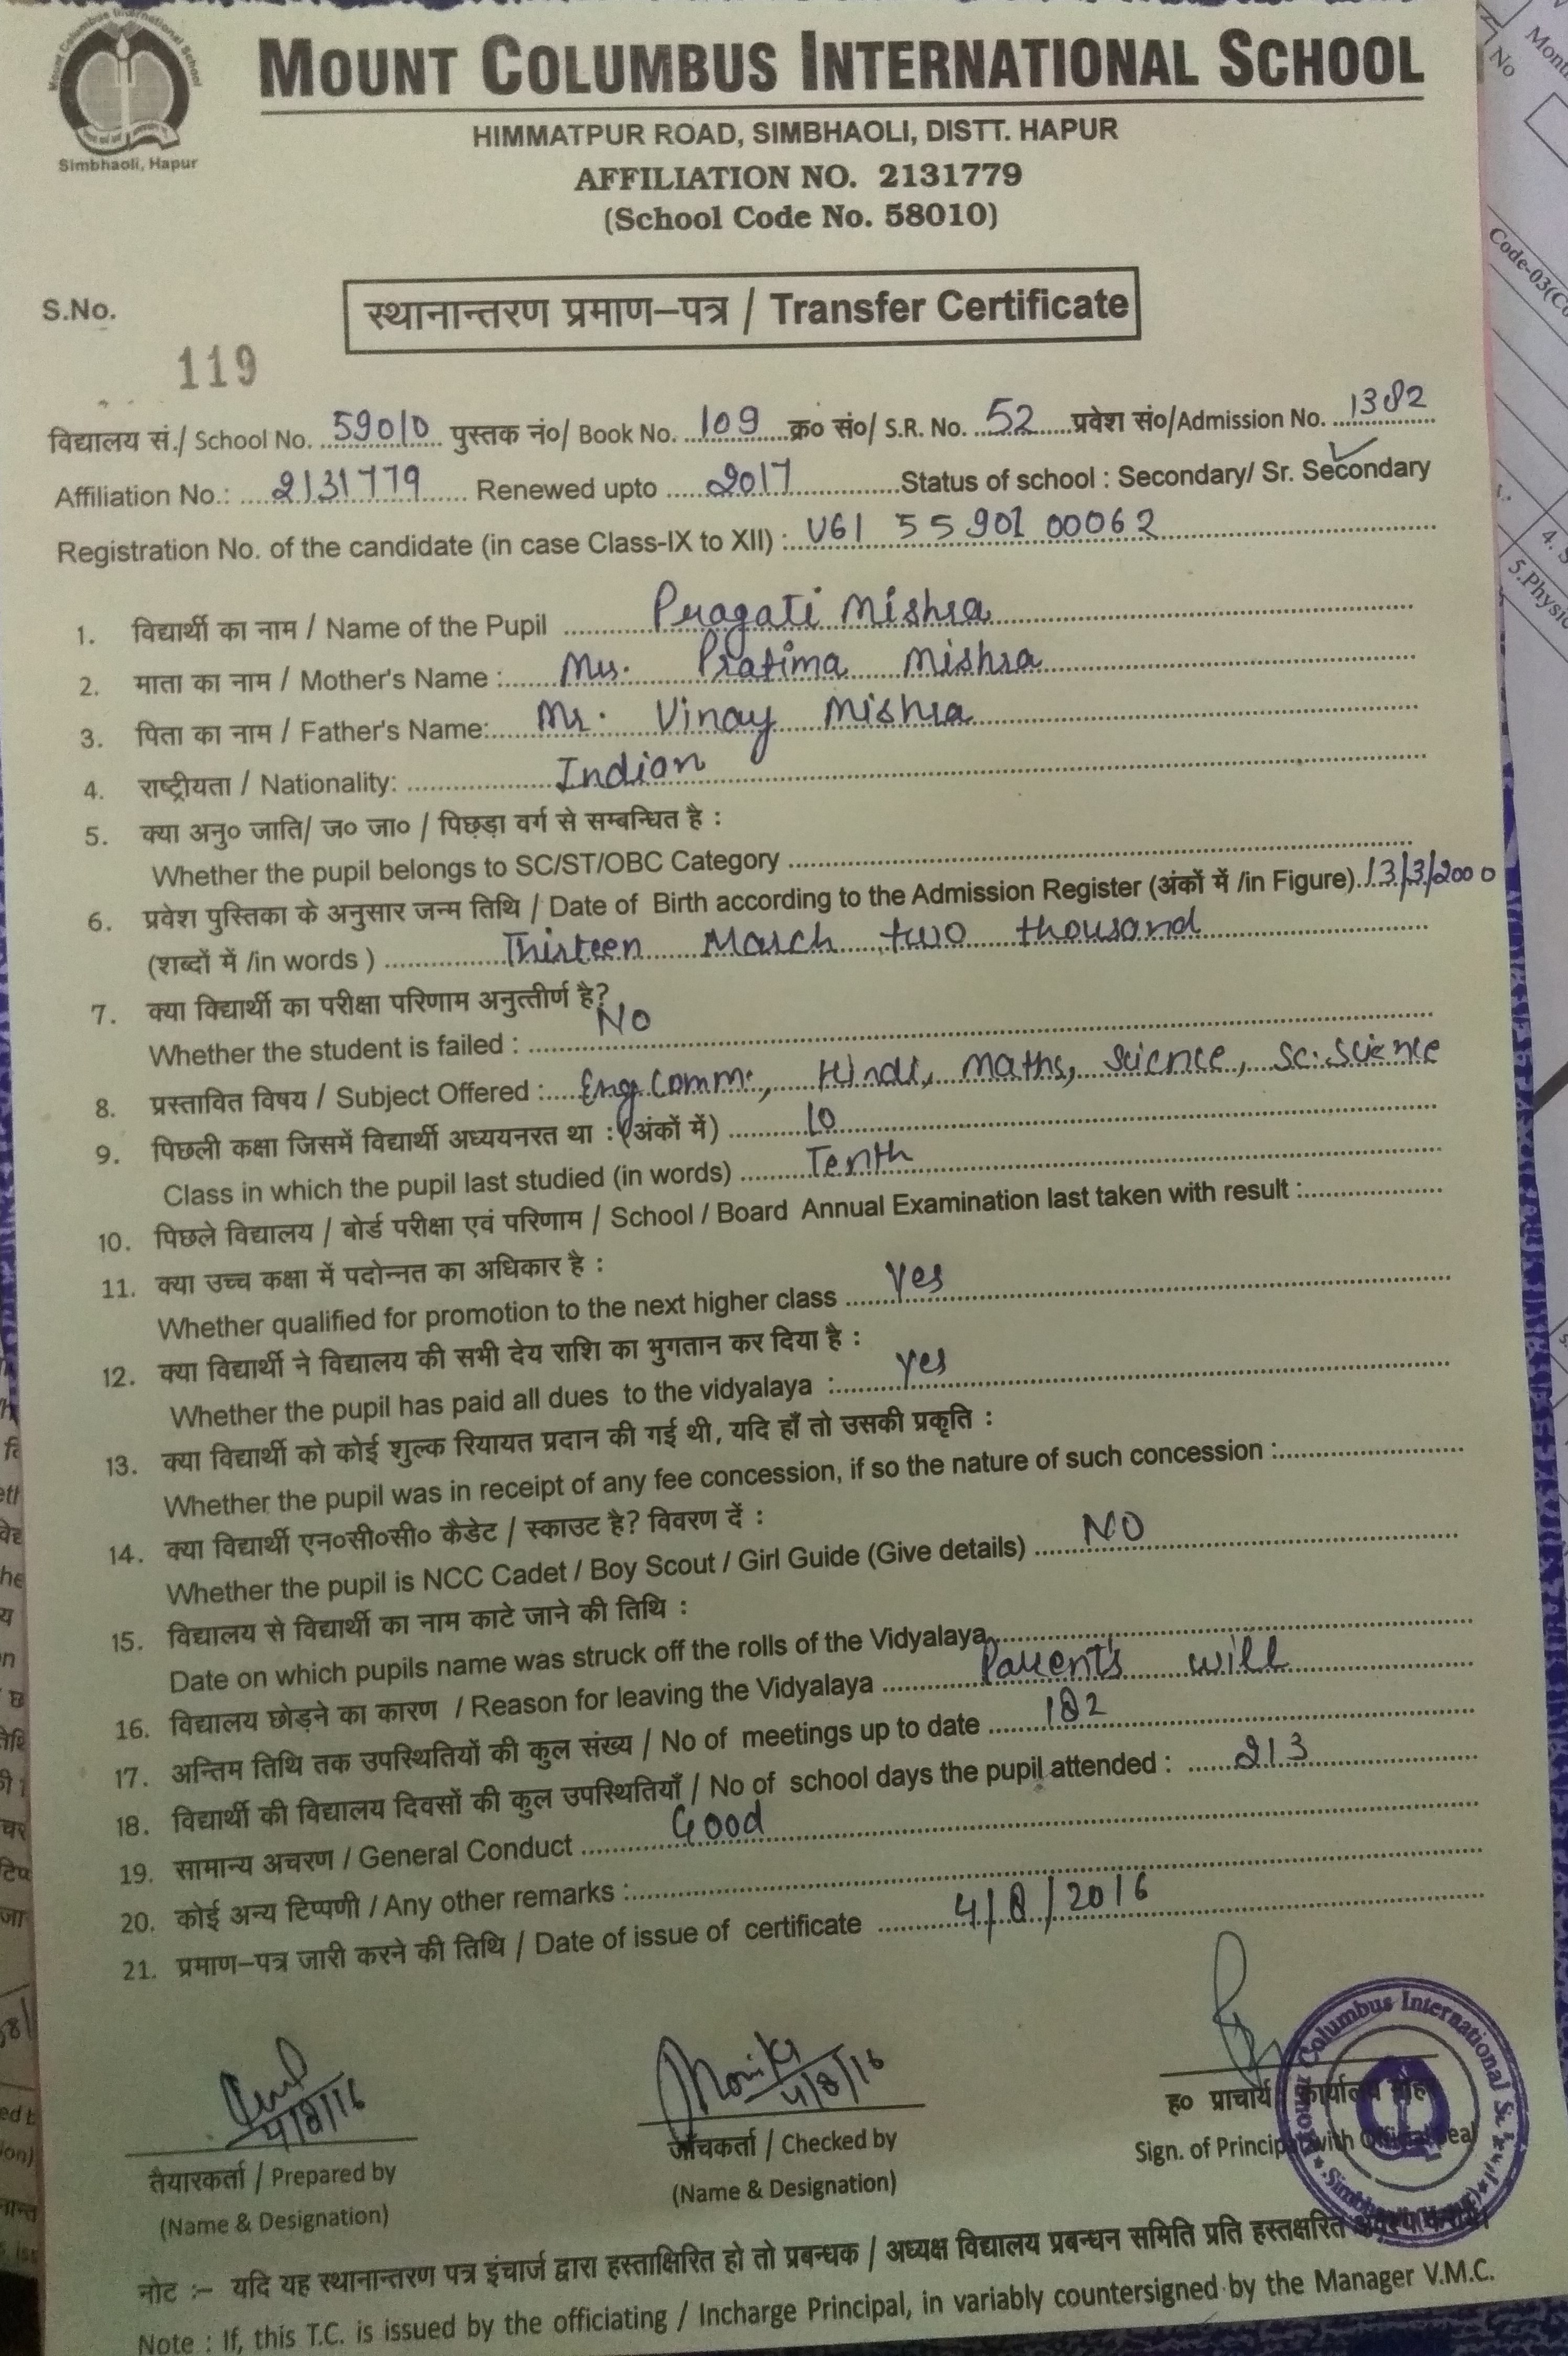 Mount Columbus International School
Simbhaoli, Hapur
MOUNT COLUMBUS INTERNATIONAL SCHOOL
HIMMATPUR ROAD, SIMBHAOLI, DISTT. HAPUR
AFFILIATION NO. 2131779
(School Code No. 58010)
S.No.
स्थानान्तरण प्रमाण–पत्र / Transfer Certificate
119
विद्यालय सं./ School No. 59010 पुस्तक नं०/ Book No. 109 क्र० सं०/ S.R. No. 52 प्रवेश सं०/Admission No. 1382
Affiliation No.: 2131779 Renewed upto 2017 Status of school : Secondary/ Sr. Secondary
Registration No. of the candidate (in case Class-IX to XII) : U61 55901 00062
1. विद्यार्थी का नाम / Name of the Pupil Pragati Mishra
2. माता का नाम / Mother's Name : Mrs. Pratima Mishra
3. पिता का नाम / Father's Name: Mr. Vinay Mishra
4. राष्ट्रीयता / Nationality: Indian
5. क्या अनु० जाति/ ज० जा० / पिछड़ा वर्ग से सम्बन्धित है :
Whether the pupil belongs to SC/ST/OBC Category
6. प्रवेश पुस्तिका के अनुसार जन्म तिथि / Date of Birth according to the Admission Register (अंकों में /in Figure) 13/3/2000
(शब्दों में /in words ) Thirteen March two thousand
7. क्या विद्यार्थी का परीक्षा परिणाम अनुत्तीर्ण है?
Whether the student is failed : NO
8. प्रस्तावित विषय / Subject Offered : Eng Comm., Hindi, Maths, Science, Sc. Science
9. पिछली कक्षा जिसमें विद्यार्थी अध्ययनरत था : (अंकों में) 10
Class in which the pupil last studied (in words) Tenth
10. पिछले विद्यालय / बोर्ड परीक्षा एवं परिणाम / School / Board Annual Examination last taken with result :
11. क्या उच्च कक्षा में पदोन्नत का अधिकार है :
Whether qualified for promotion to the next higher class Yes
12. क्या विद्यार्थी ने विद्यालय की सभी देय राशि का भुगतान कर दिया है :
Whether the pupil has paid all dues to the vidyalaya : Yes
13. क्या विद्यार्थी को कोई शुल्क रियायत प्रदान की गई थी, यदि हाँ तो उसकी प्रकृति :
Whether the pupil was in receipt of any fee concession, if so the nature of such concession :
14. क्या विद्यार्थी एन०सी०सी० कैडेट / स्काउट है? विवरण दें :
Whether the pupil is NCC Cadet / Boy Scout / Girl Guide (Give details) NO
15. विद्यालय से विद्यार्थी का नाम काटे जाने की तिथि :
Date on which pupils name was struck off the rolls of the Vidyalaya
16. विद्यालय छोड़ने का कारण / Reason for leaving the Vidyalaya Parent's will
17. अन्तिम तिथि तक उपस्थितियों की कुल संख्य / No of meetings up to date 182
18. विद्यार्थी की विद्यालय दिवसों की कुल उपस्थितियाँ / No of school days the pupil attended : 213
19. सामान्य अचरण / General Conduct Good
20. कोई अन्य टिप्पणी / Any other remarks :
21. प्रमाण–पत्र जारी करने की तिथि / Date of issue of certificate 4/8/2016
4/8/16
4/8/16
तैयारकर्ता / Prepared by
(Name & Designation)
जाँचकर्ता / Checked by
(Name & Designation)
ह० प्राचार्य कार्यालय मोहर
Sign. of Principal with Official Seal
नोट :– यदि यह स्थानान्तरण पत्र इंचार्ज द्वारा हस्ताक्षिरित हो तो प्रबन्धक / अध्यक्ष विद्यालय प्रबन्धन समिति प्रति हस्तक्षरित
Note : If, this T.C. is issued by the officiating / Incharge Principal, in variably countersigned by the Manager V.M.C.
Code-03